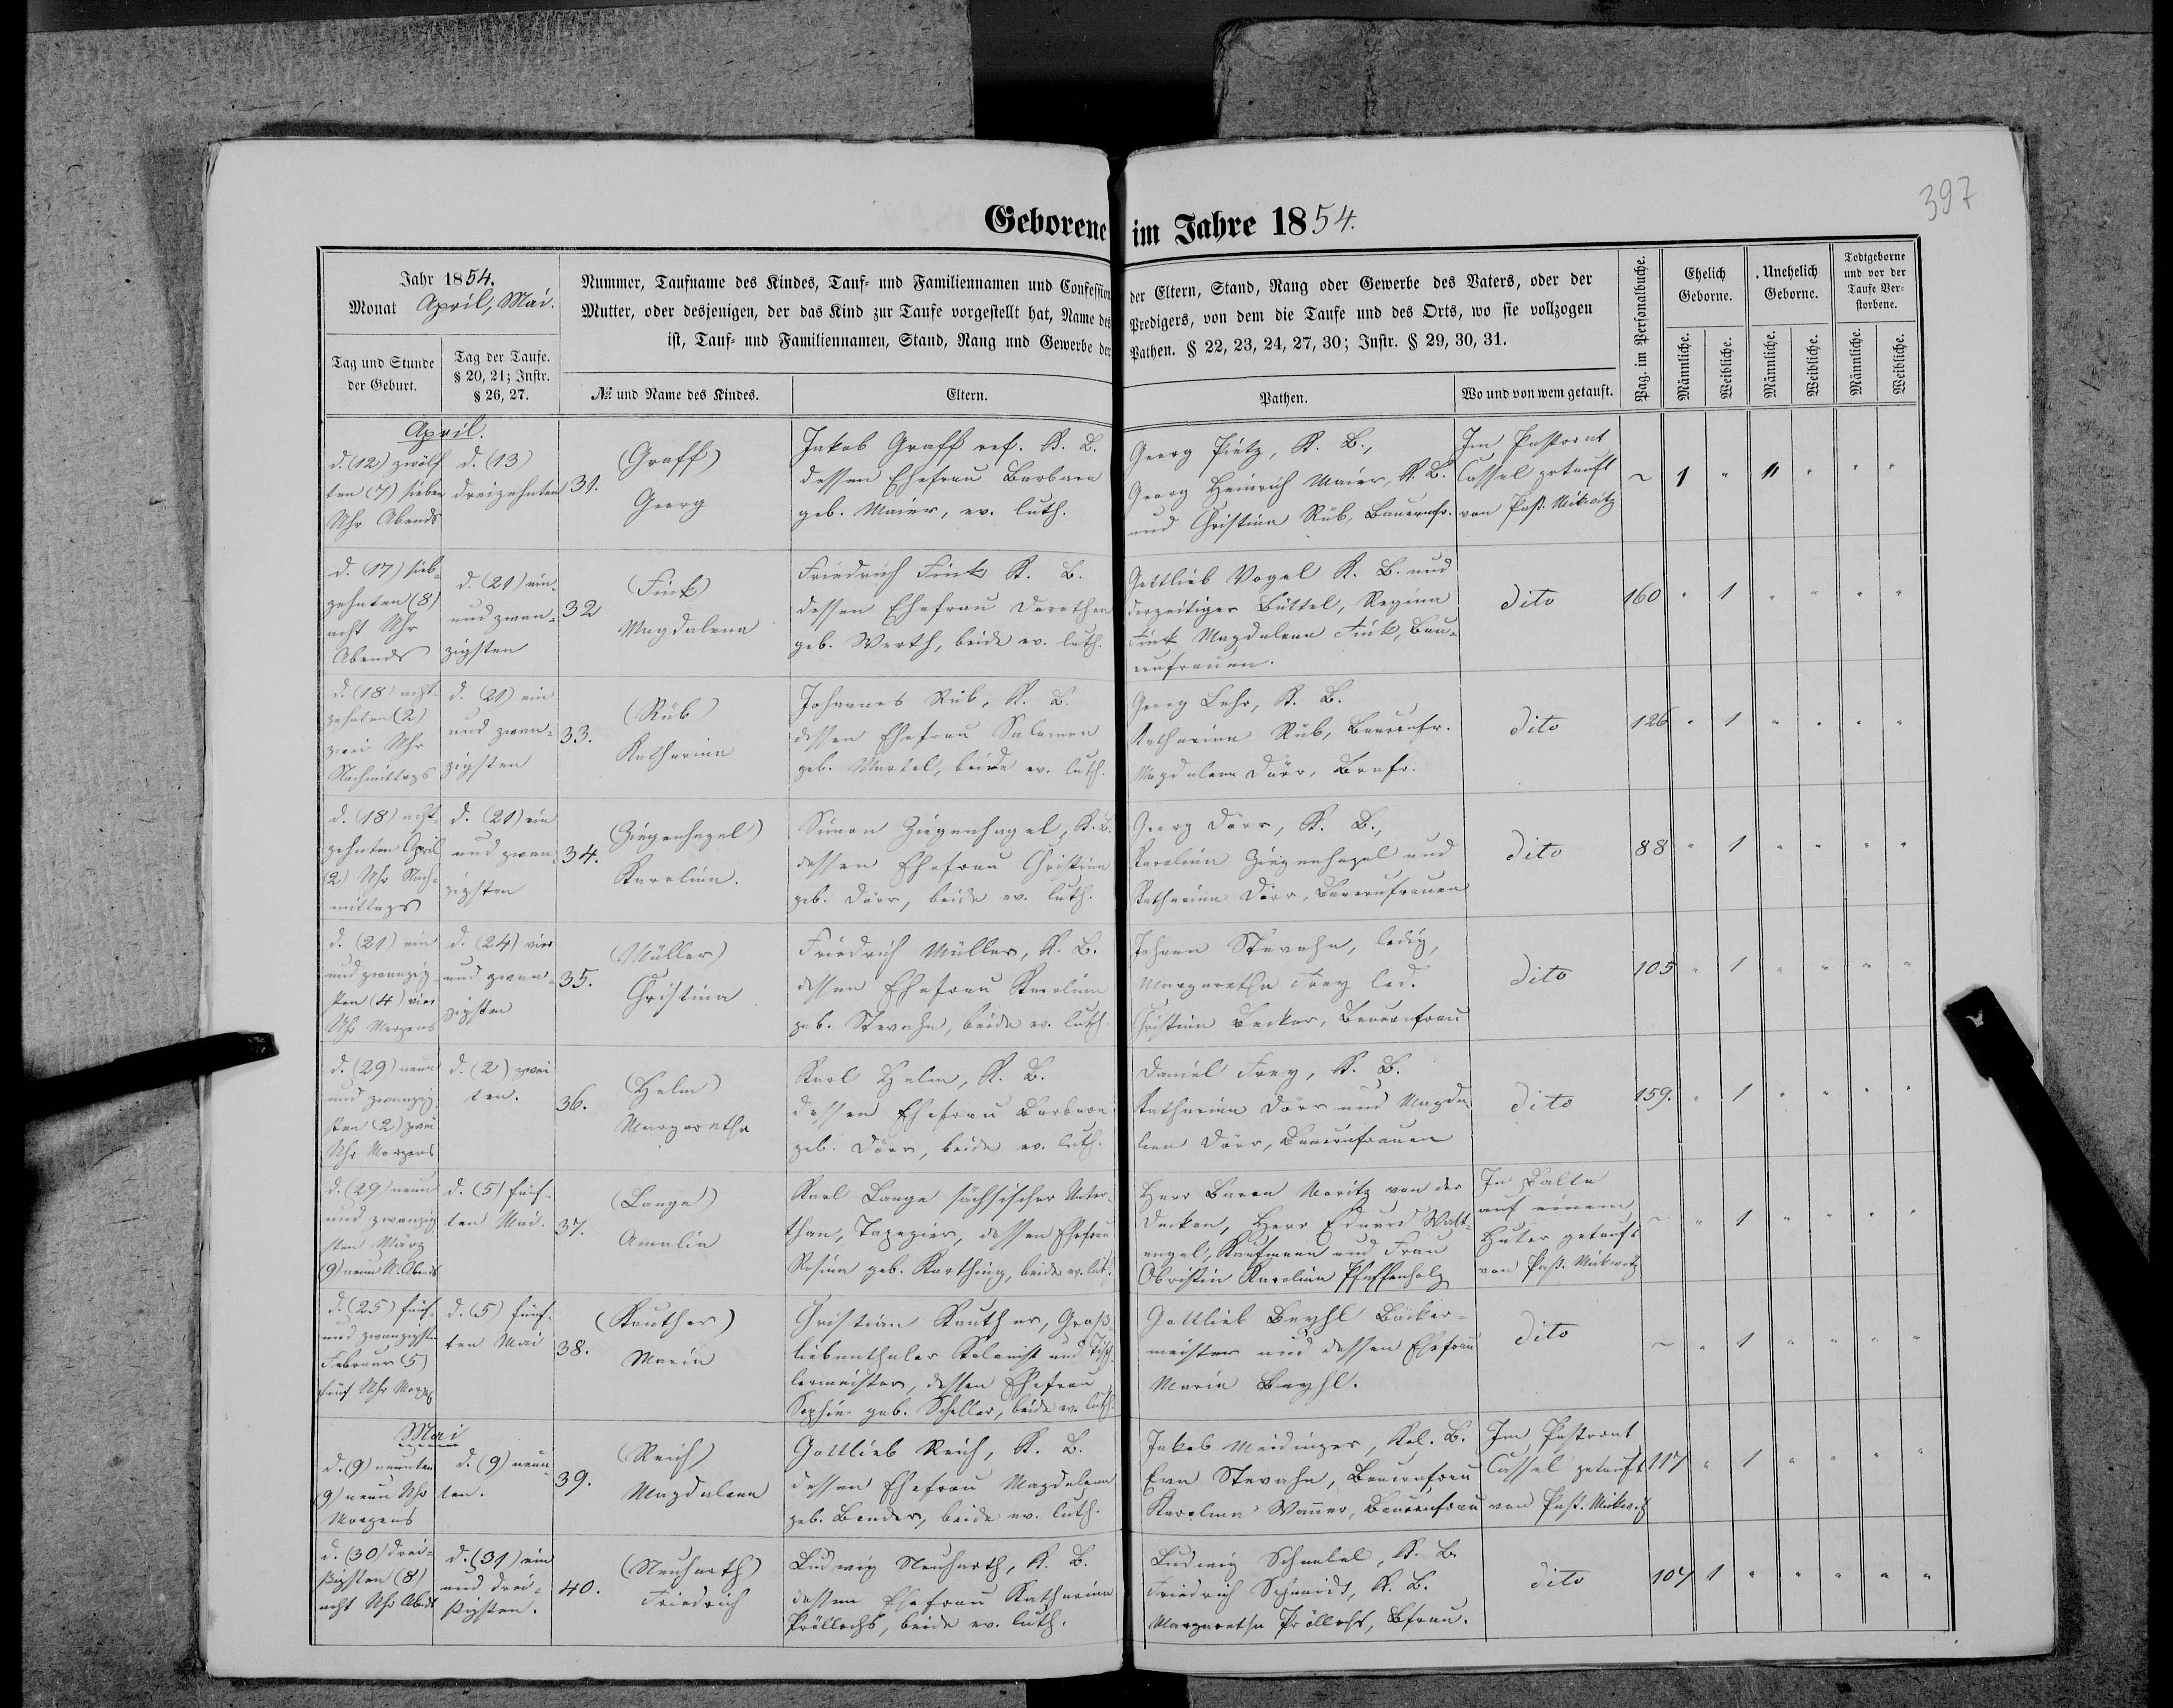 397
Geborene im Jahre 1854.
Jahr 1854.
Monat April, Mai.
Tag und Stunde
der Geburt.
Tag der Taufe.
§ 20, 21; Instr.
§ 26, 27.
Nummer, Taufname des Kindes, Tauf- und Familiennamen und Confession der Eltern, Stand, Rang oder Gewerbe des Vaters, oder der
Mutter, oder desjenigen, der das Kind zur Taufe vorgestellt hat, Name des Predigers, von dem die Taufe und des Orts, wo sie vollzogen
ist, Tauf- und Familiennamen, Stand, Rang und Gewerbe der Pathen. § 22, 23, 24, 27, 30; Instr. § 29, 30, 31.
№ und Name des Kindes.
Eltern.
Pathen.
Wo und von wem getauft.
Pag. im Personalbuche.
Ehelich
Geborne.
Unehelich
Geborne.
Todtgeborne
und vor der
Taufe Ver-
storbene.
Männliche.
Weibliche.
Männliche.
Weibliche.
Männliche.
Weibliche.
April.
d. (12) zwölf
ten (7) sieben
Uhr Abends
d. (13)
dreizehnten
31.
(Graff)
Georg
Jakob Graff ref. K. B.
dessen Ehefrau Barbara
geb. Maier, ev. luth.
Georg Pietz, K. B.,
Georg Heinrich Maier, K. B.
und Christina Rüb, Bauernfr.
Im Pastorat
Cassel getauft
von Past. Mikwitz
~ 1 " 11 " " "
d. (17) sieb-
zehnten (8)
acht Uhr
Abends
d. (21) ein-
und zwan-
zigsten
32
(Fink)
Magdalena
Friedrich Fink K. B.
dessen Ehefrau Dorothea
geb. Werth, beide ev. luth.
Gottlieb Vogel K. B. und
derzeitiger Büttel, Regina
Fink Magdalena Fink, Bau-
ernfrauen.
dito
160 " 1 " " " "
d. (18) acht-
zehnten (2)
zwei Uhr
Nachmittags
d. (21) ein
und zwan-
zigsten
33.
(Rüb)
Katharina
Johannes Rüb, K. B.
dessen Ehefrau Salomea
geb. Martel, beide ev. luth.
Georg Lehr, K. B.
Katharina Rüb, Bauernfr.
Magdalena Dörr, Brnfr.
dito
126 " 1 " " " "
d. (18) acht-
zehnten April
(2) Uhr Nach-
mittags
d. (21) ein
und zwan-
zigsten
34.
(Ziegenhagel)
Karolina.
Simon Ziegenhagel, K. B.
dessen Ehefrau Christina
geb. Dörr, beide ev. luth.
Georg Dörr, K. B.,
Karolina Ziegenhagel und
Katharina Dörr, Bauernfrauen
dito
88 " 1 " " " "
d. (21) ein
und zwanzig-
sten (4) vier
Uhr Morgens
d. (24) vier
und zwan-
zigsten
35.
(Müller)
Christina
Friedrich Müller, K. B.
dessen Ehefrau Karolina
geb. Stevahn, beide ev. luth.
Johann Stevahn, ledig,
Margaretha Frey led.
Christina Becker, Bauernfrau
dito
105 " 1 " " " "
d. (29) neun
und zwanzig-
sten (2) zwei
Uhr Morgens
d. (2) zwei
ten.
36.
(Helm)
Margaretha
Karl Helm, K. B.
dessen Ehefrau Barbara
geb. Dörr, beide ev. luth.
Daniel Frey, K. B.
Katharina Dörr und Magda
lena Dörr, Bauernfrauen
dito
159. " 1 " " " "
d. (29) neun
und zwanzig-
sten März
(9) neun U. Abends
d. (5) fünf-
ten Mai.
37.
(Lange)
Amalia
Karl Lange sächsischer Unter-
than, Tapezier, dessen Ehefrau
Rosina geb. Karthing, beide ev. luth.
Herr Baron Moritz von der
Decken, Herr Eduard
Kaufmann und Frau
Obristin Karolina Pfaffenholz
In Balta
auf einem
getauft
von Past. Mikwitz
~ " 1 " " " "
d. (25) fünf-
und zwanzigsten
Februar (5)
fünf Uhr Morgens
d. (5) fünf-
ten Mai
38.
(Kauther)
Maria
Christian Kauther, Groß
liebenthaler Kolonist und Tisch-
lermeister, dessen Ehefrau
Sophie geb. Scheller, beide ev. luth.
Gottlieb Beyhl Bäcker-
meister und dessen Ehefrau
Maria Beyhl.
dito
~ " 1 " " " "
Mai
d. (9) neunten
(9) neun Uhr
Morgens
d. (9) neun
ten.
39.
(Reich)
Magdalena
Gottlieb Reich, K. B.
dessen Ehefrau Magdalena
geb. Bender, beide ev. luth.
Jakob Meidinger, Kol. B.
Eva Stevahn, Bauernfrau
Karolina Wanner, Bauernfrau
Im Pastorat
Cassel getauft
von Past. Mikwitz
117 " 1 " " " "
d. (30) drei-
ßigsten (8)
acht Uhr Abends
d. (31) ein
und drei-
ßigsten.
40.
(Neuharth)
Friedrich
Ludwig Neuharth, K. B.
dessen Ehefrau Katharina
Pröllochs, beide ev. luth.
Ludwig Schnabel, K. B.
Friedrich Schmidt, K. B.
Margaretha Pröllochs, Bfrau.
dito
104 1 " " " " "